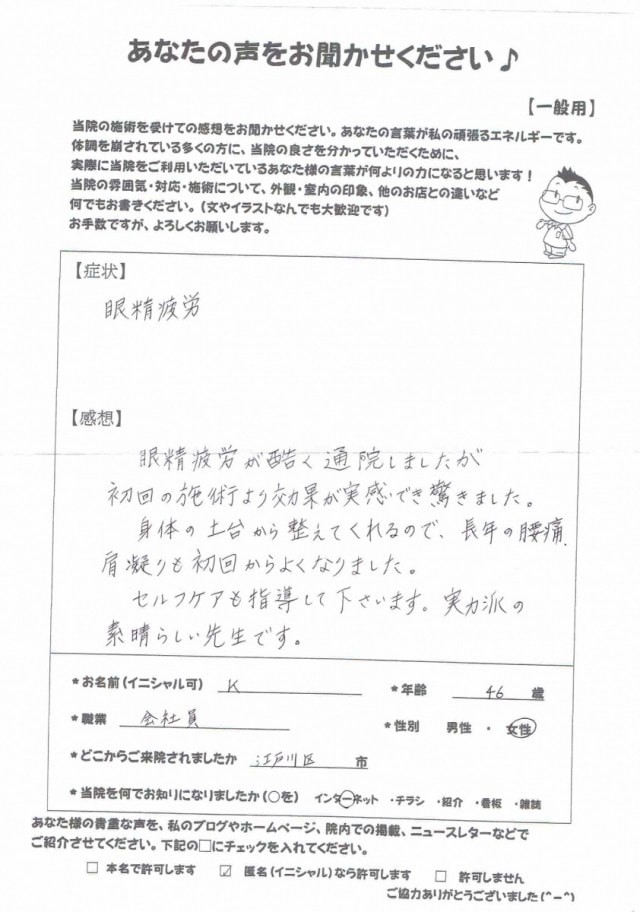 あなたの声をお聞かせください♪
【一般用】
当院の施術を受けての感想をお聞かせください。あなたの言葉が私の頑張るエネルギーです。
体調を崩されている多くの方に、当院の良さを分かっていただくために、
実際に当院をご利用いただいているあなた様の言葉が何よりの力になると思います！
当院の雰囲気・対応・施術について、外観・室内の印象、他のお店との違いなど
何でもお書きください。(文やイラストなんでも大歓迎です)
お手数ですが、よろしくお願いします。
【症状】
眼精疲労
【感想】
眼精疲労が酷く通院しましたが
初回の施術より効果が実感でき驚きました。
身体の土台から整えてくれるので、長年の腰痛、
肩凝りも初回からよくなりました。
セルフケアも指導して下さいます。実力派の
素晴らしい先生です。
*お名前(イニシャル可) K *年齢 46 歳
*職業 会社員 *性別 男性 ・ 女性
*どこからご来院されましたか 江戸川区 市
*当院を何でお知りになりましたか(○を) インターネット ・チラシ ・紹介 ・看板 ・雑誌
あなた様の貴重な声を、私のブログやホームページ、院内での掲載、ニュースレターなどで
ご紹介させてください。下記の□にチェックを入れてください。
□ 本名で許可します ☑ 匿名(イニシャル)なら許可します □ 許可しません
ご協力ありがとうございました(^-^)